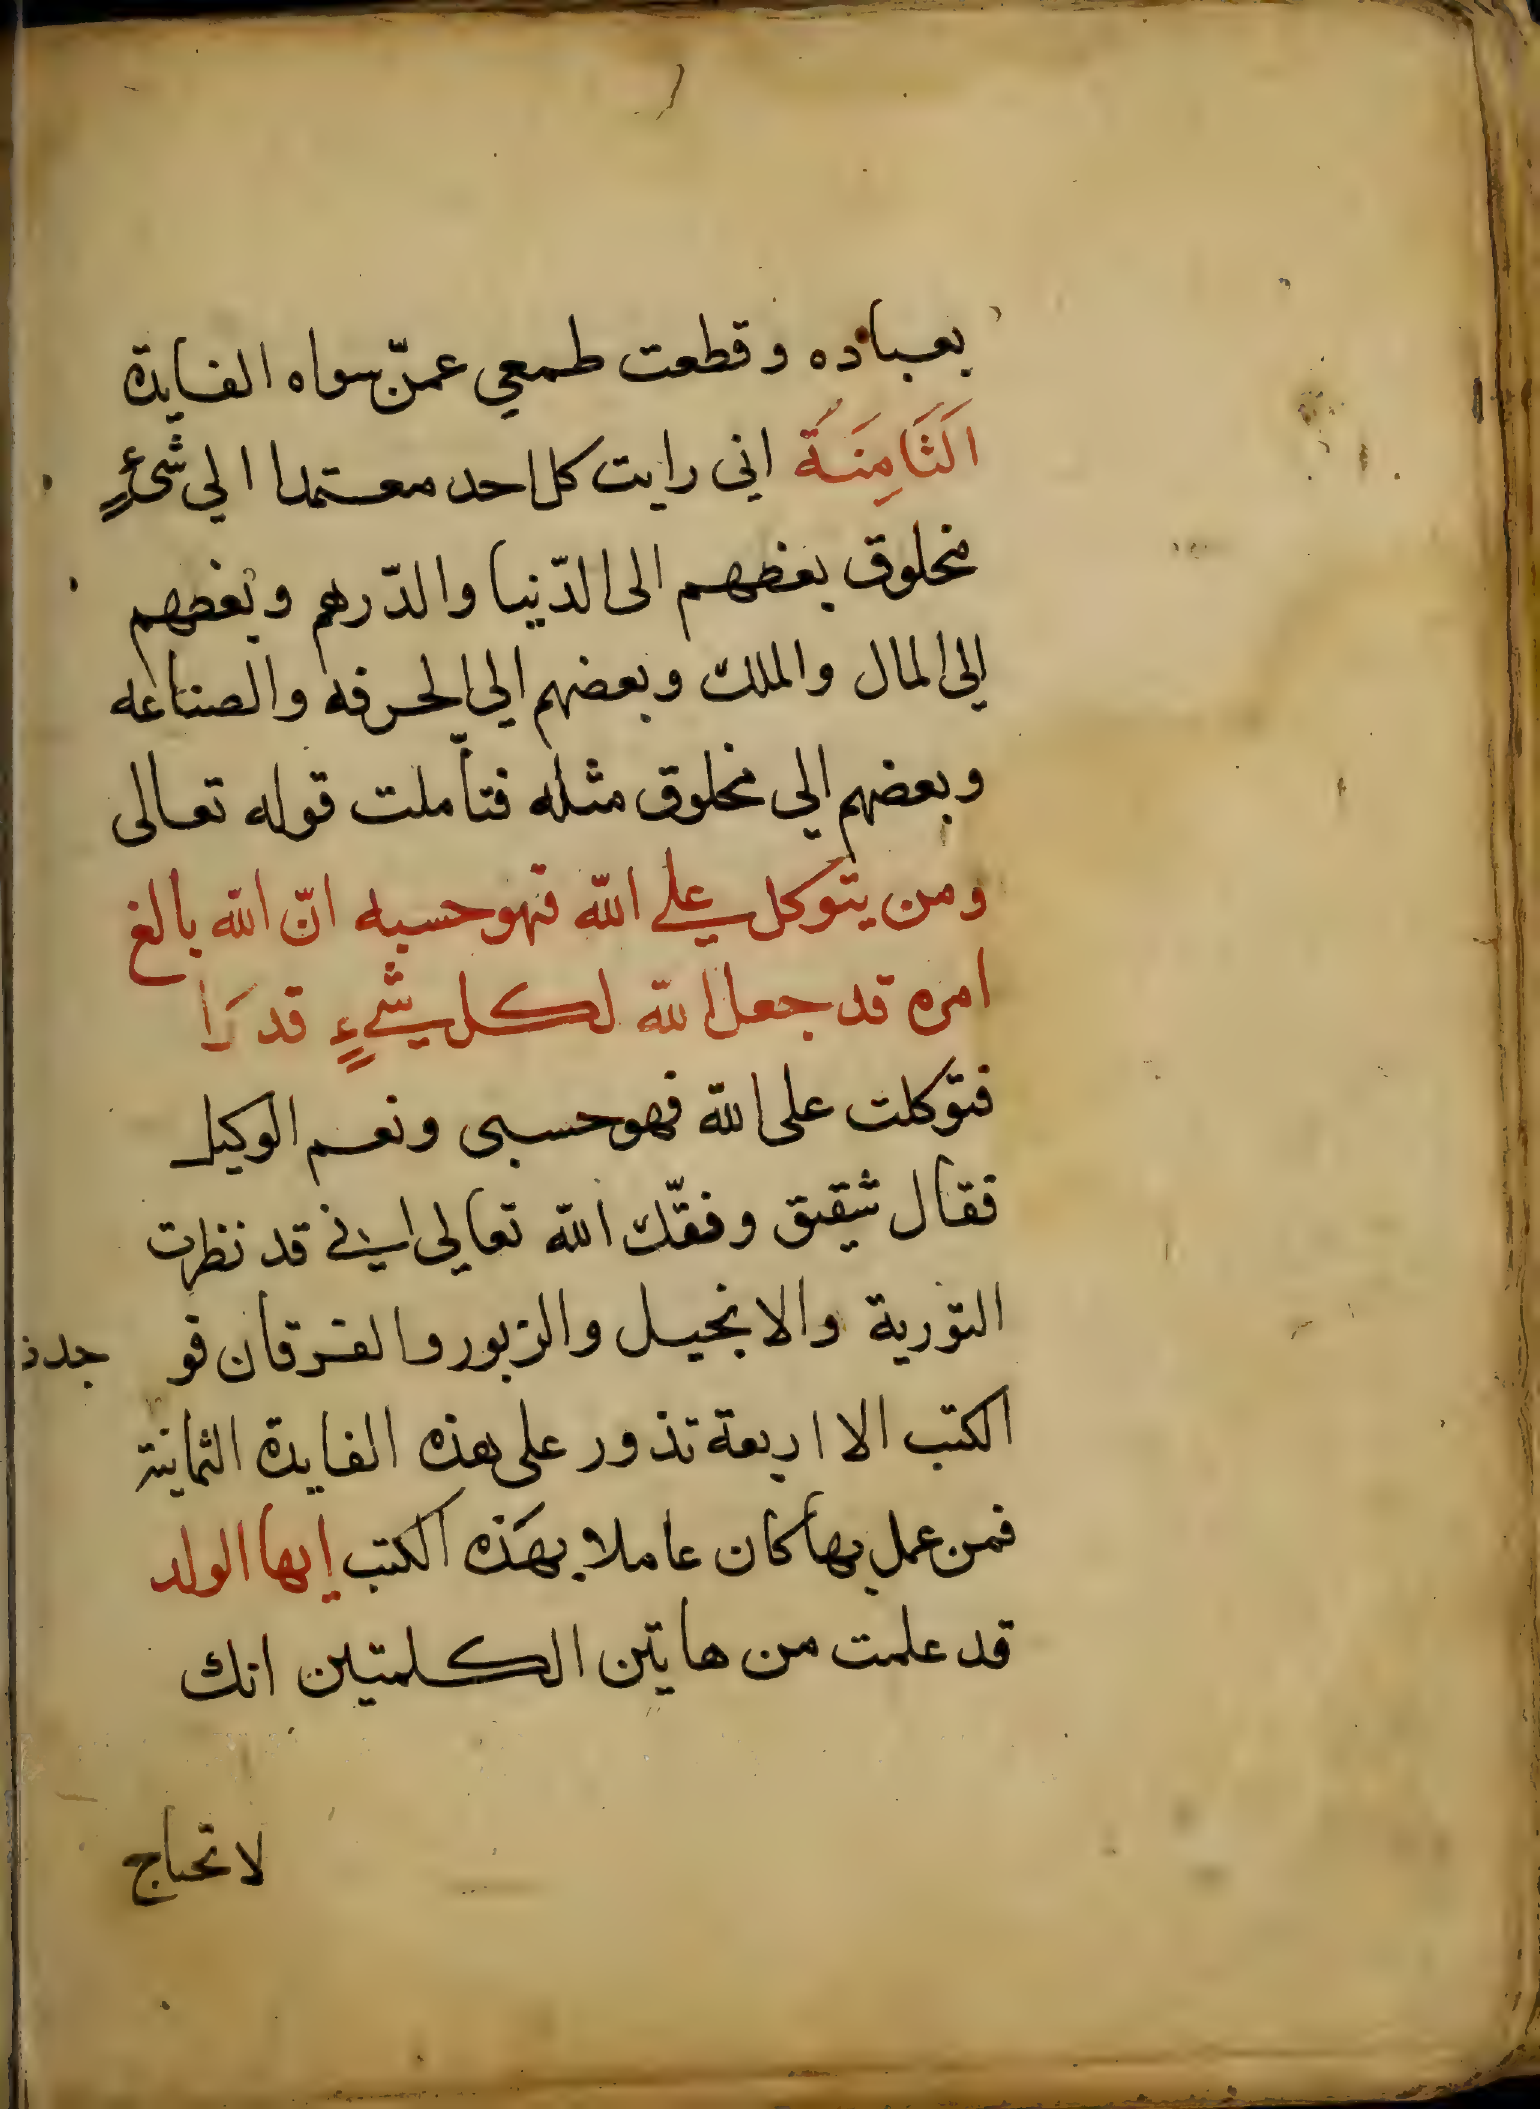 بعباده وقطعت طمعي عمّن سواه الفايدة
الَثَامِنَة اني رايت كل احد معتمدا الي شئٍ
مخلوق بعضهم الى الدّنيا والدّرهم وبعضهم
الي المال والملك وبعضهم الي الحرفه والصناعه
وبعضهم الي مخلوق مثله فتأملت قوله تعالى
ومن يتوكل علي اللّه فهو حسبه انّ اللّه بالغ
امره قد جعل اللّه لكل شيءٍ قدرَا
فتوكلت على اللّه فهو حسبى ونعم الوكيل
فقال شقيق وفقّك اللّه تعالى اني قد نظرت
التورية والانجيل والزبور والفرقان فو جدت
الكتب الا اربعة تذور على هذه الفايدة الثمانية
فمن عمل بها كان عاملا بهَذه الكتب ايها الولد
قد علمت من هاتين الكلمتين انك
لا تحتاج